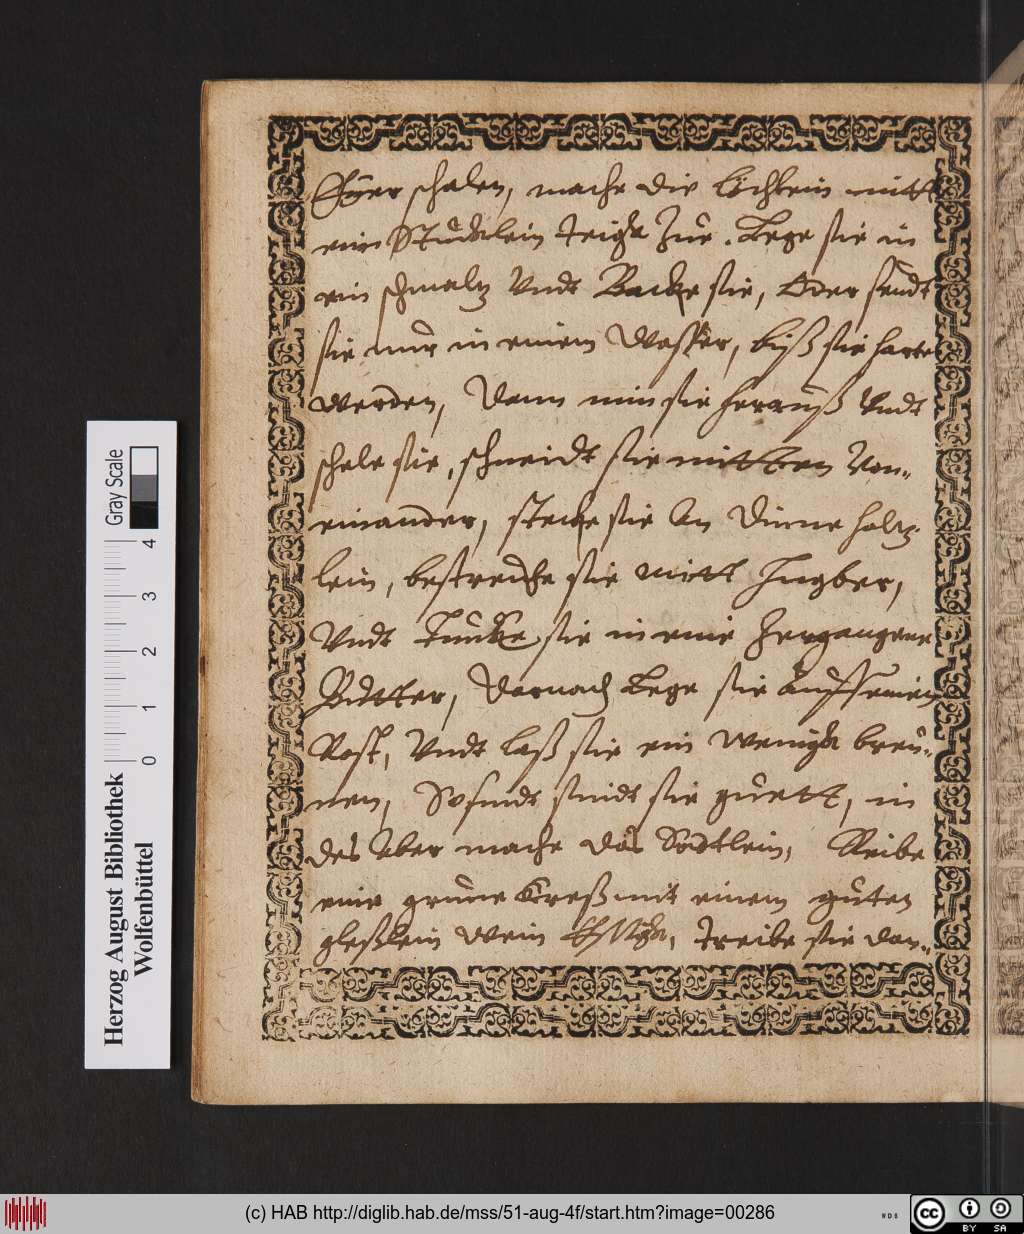 Eÿer schalen, mache die Löchlein mitt
ein Stücklein teigk zue. Lege sie in
ein schmaltz Vndt Backe sie, Oder seudt
sie nur in einem Wasser, biß sie harte
werden, Dann nim sie herauß Vndt
schele sie, schneidt sie mitten Von-
einander, stecke sie An dünne holtz-
lein, bestreiche sie mitt Ingber,
Vndt Tuncke sie in eine Zergangene
Butter, Darnach Lege sie Auff einen
Rost, Vndt laß sie ein wenigk breu-
nen, So sindt sie guett, in
des Aber mache das Sodtlein, Reibe
eine grüne Kreß mit einem guten
gleßlein Wein Essigk, treibe sie dan-
Herzog August Bibliothek
Wolfenbüttel
Gray Scale
0 1 2 3 4
(c) HAB http://diglib.hab.de/mss/51-aug-4f/start.htm?image=00286
cc BY SA